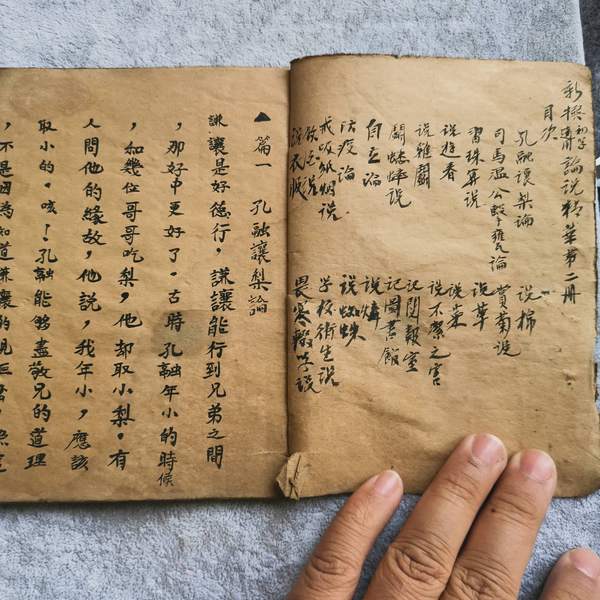 新撰初學適用論說精華第二冊
目次
孔融讓梨論
司馬溫公擊甕論
習珠算說
說遊春
說雞鬭
鬭蟋蟀說
自立論
防疫論
戒吸紙烟說
飲食說
說衣服
說棉
賞菊說
說草
說菜
說不潔之害
記閱報室
記圖書館
說燐
說蜘蛛
學校衛生說
畏寒輟學說
▲篇一 孔融讓梨論
謙讓是好德行,謙讓能行到兄弟之間
,那好中更好了。古時孔融年小的時候
,如幾位哥哥吃梨,他却取小梨。有
人問他的緣故,他說,我年小,應該
取小的。咳!孔融能够盡敬兄的道理
,不是因為知道謙讓的